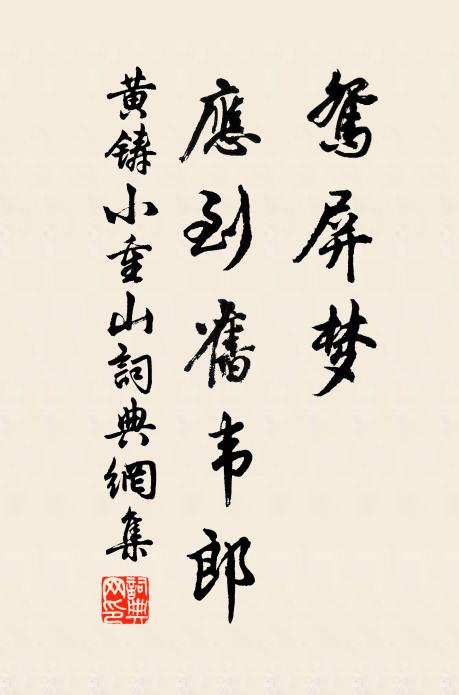 鸳屏梦
應到舊韦郎
黄鑄小重山詞典網集
詞典网印